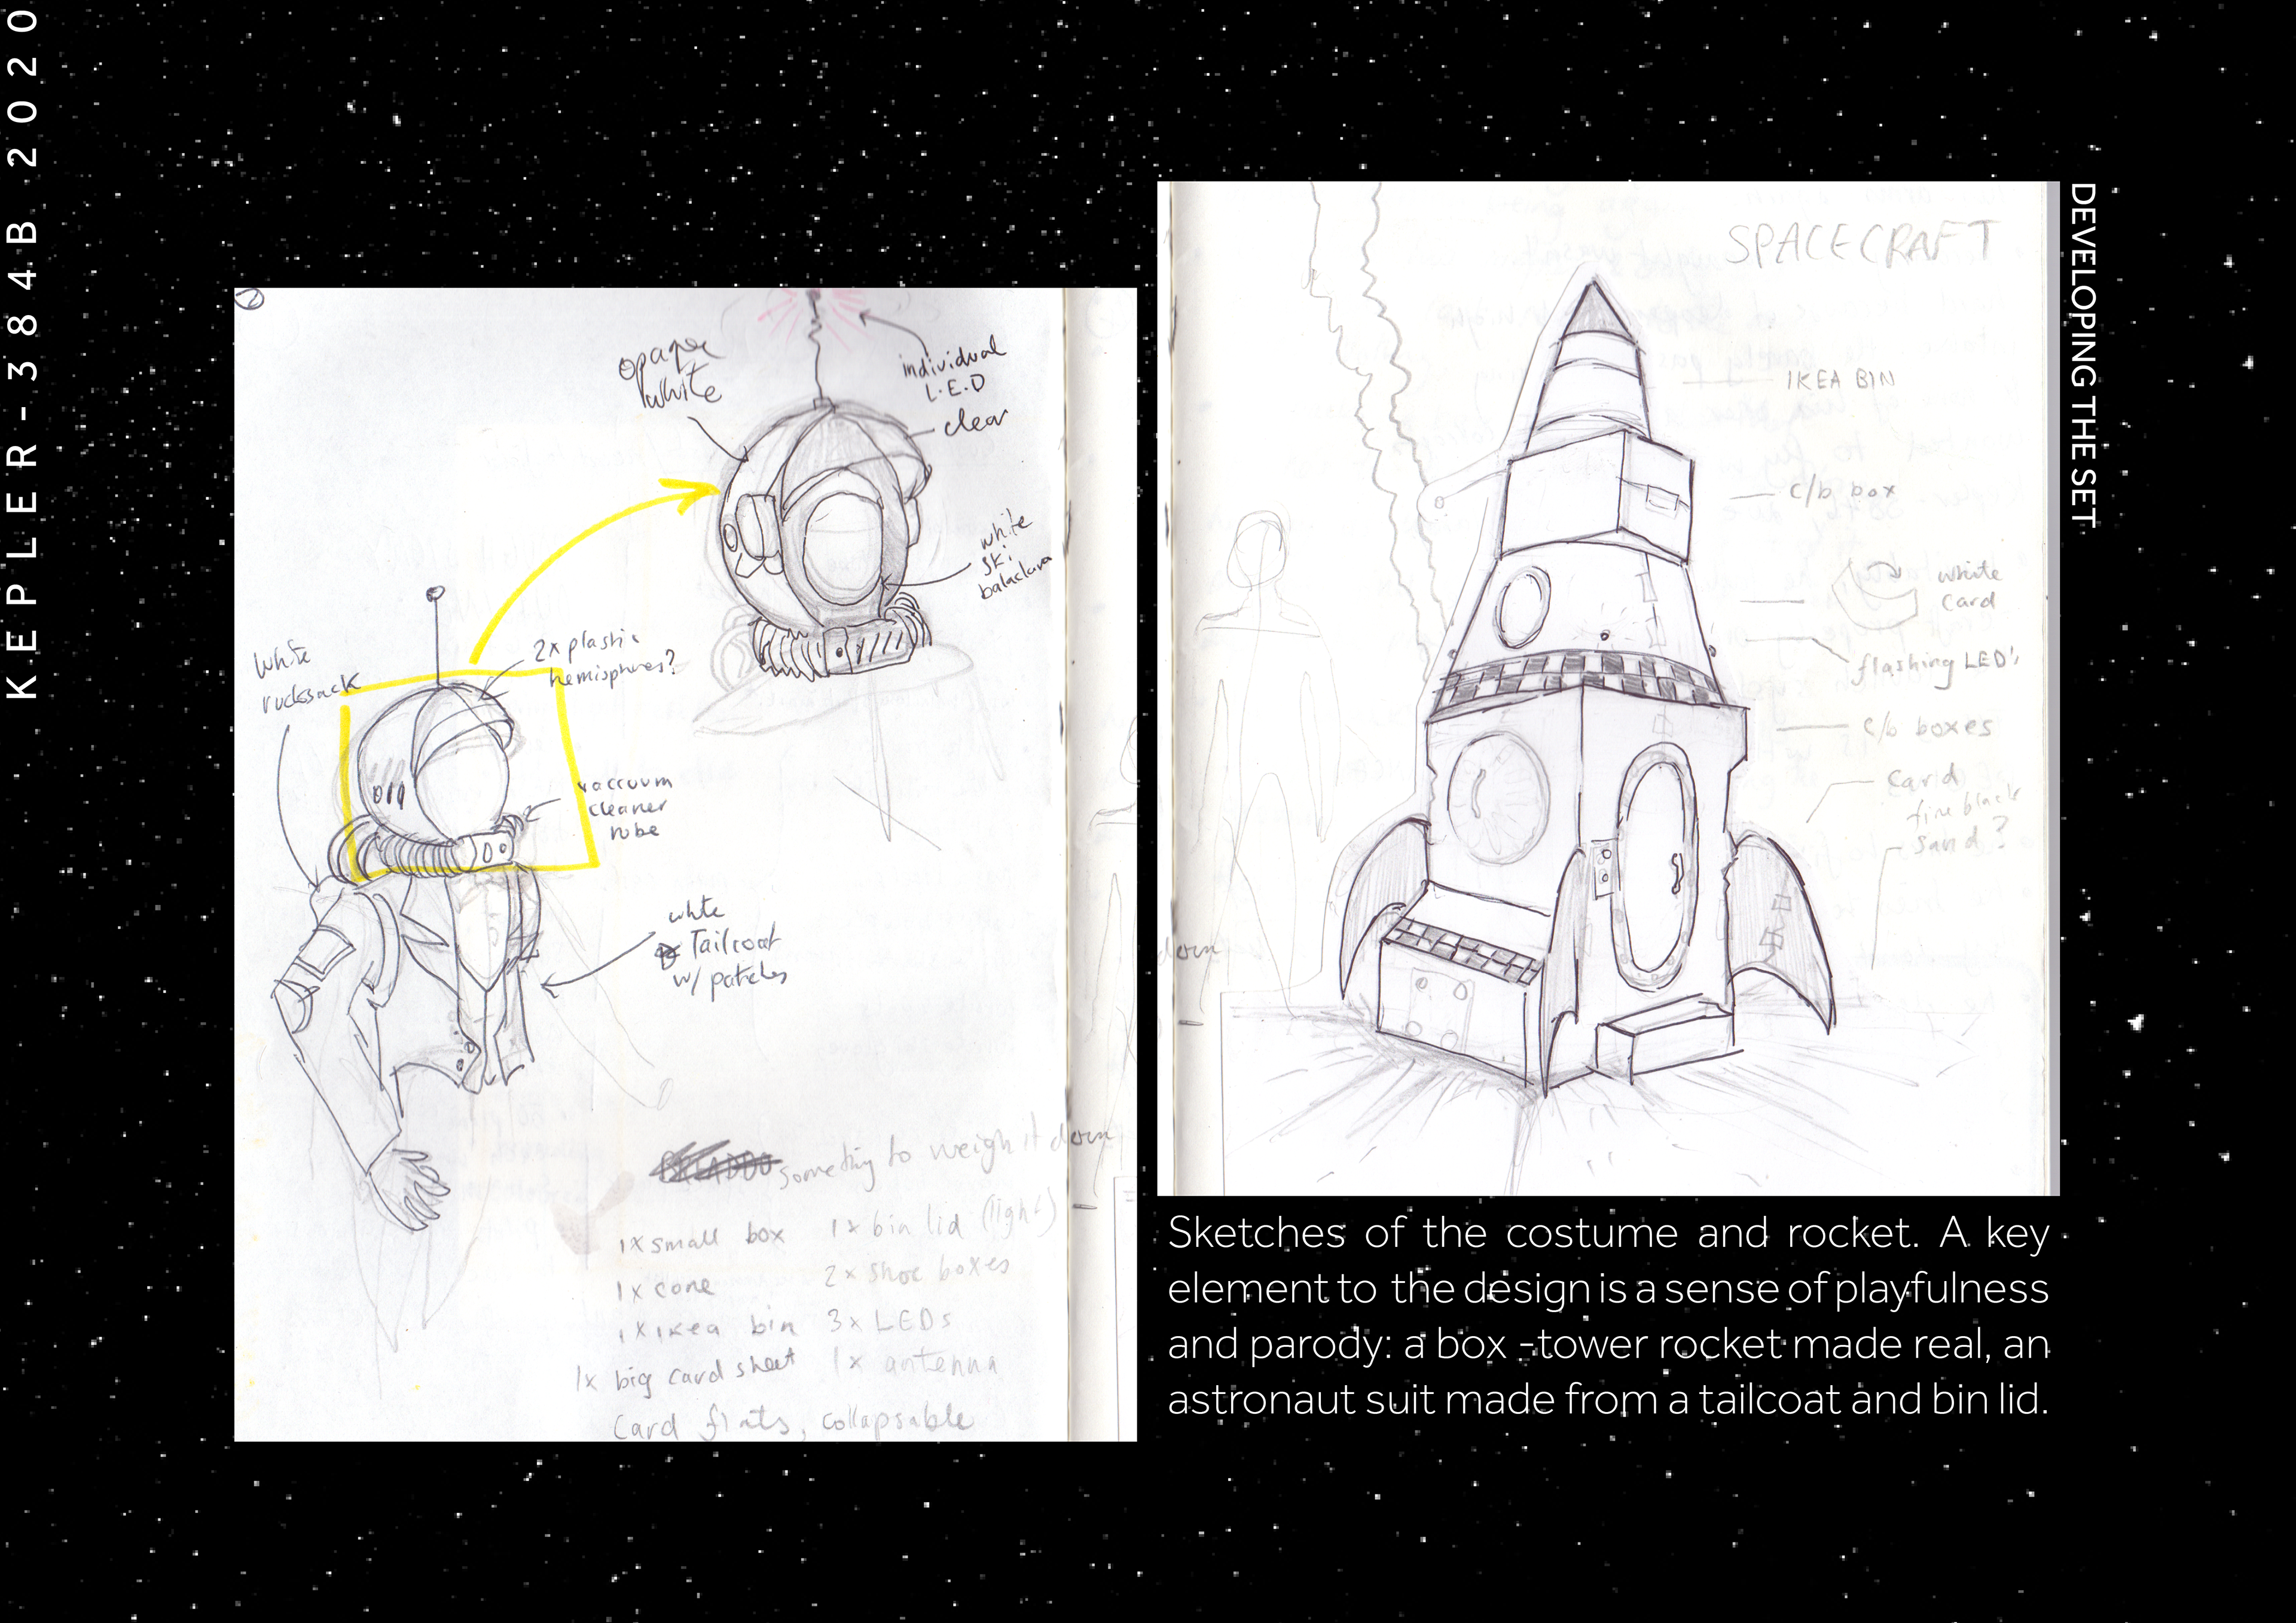 KEPLER-384B 2020
DEVELOPING THE SET
2
opaque
white
individual
L.E.D
clear
white
ski
balaclava
white
rucksack
2x plastic
hemispheres?
vaccuum
cleaner
tube
white
Tailcoat
w/ patches
something to weigh it down
1x small box
1x bin lid (light)
1x cone
2x shoe boxes
1x ikea bin
3x LEDs
1x big card sheet
1x antenna
Card flats, collapsable
SPACECRAFT
IKEA BIN
c/b box
white
card
flashing LED's
c/b boxes
card
fine black
sand?
Sketches of the costume and rocket. A key
element to the design is a sense of playfulness
and parody: a box -tower rocket made real, an
astronaut suit made from a tailcoat and bin lid.